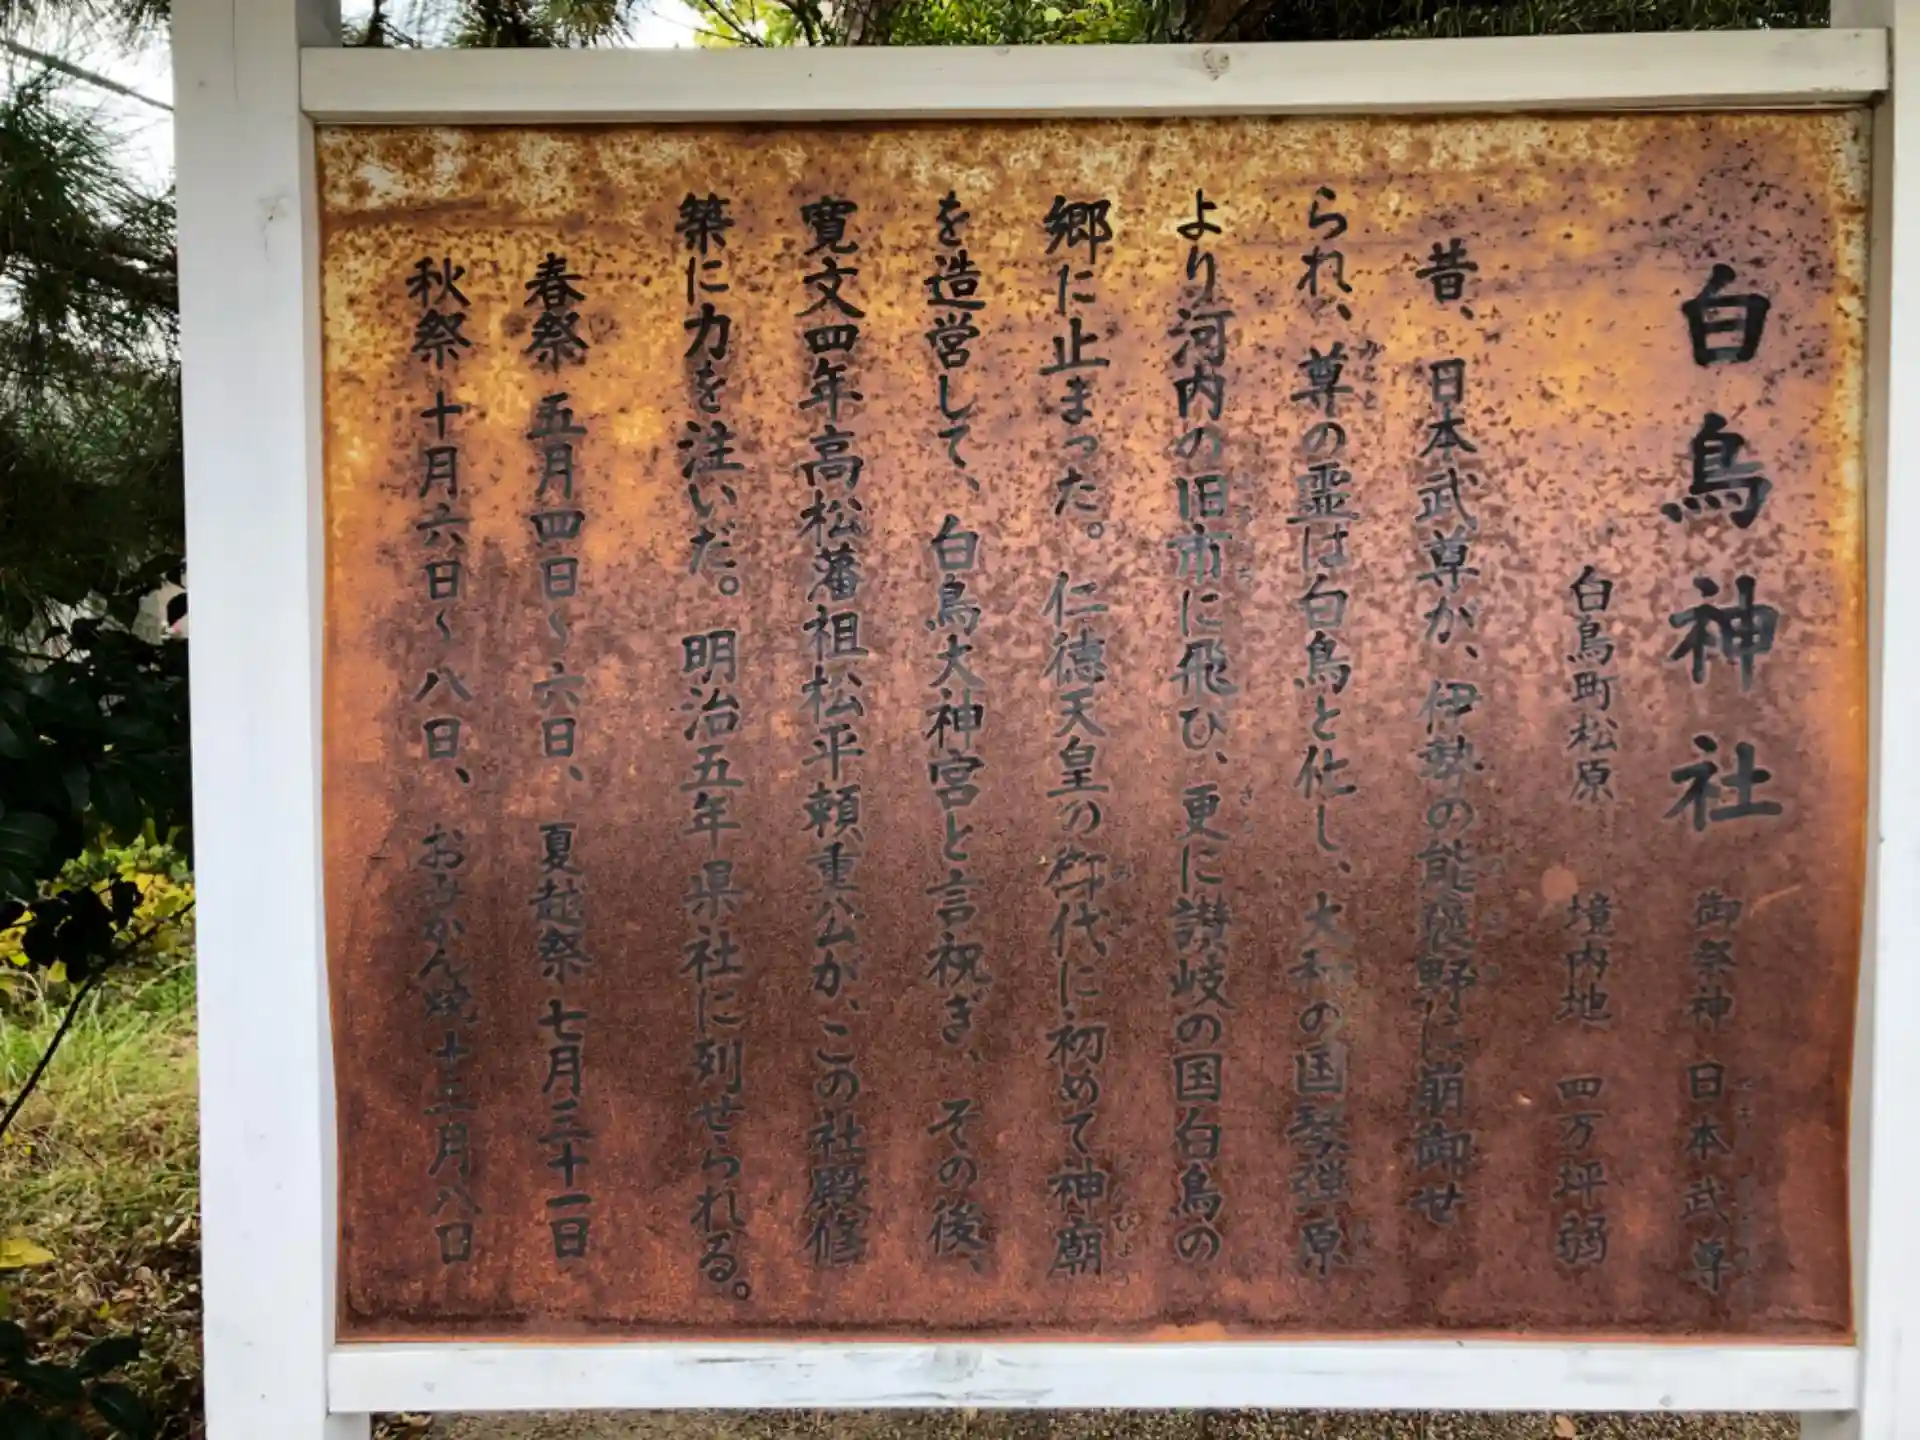 白鳥神社 御祭神 日本武尊
白鳥町松原 境内地 四万坪弱
昔、日本武尊が、伊勢の能褒野に崩御せ
られ、尊の霊は白鳥と化し、大和の国琴弾原
より河内の旧市に飛び、更に讃岐の国白鳥の
郷に止まった。仁徳天皇の御代に初めて神廟
を造営して、白鳥大神宮と言祝ぎ、その後、
寛文四年高松藩祖松平頼重公が、この社殿修
築に力を注いだ。明治五年県社に列せられる。
春祭 五月四日〜六日、夏越祭 七月三十一日
秋祭 十月六日〜八日、おみかん焼 十二月八日